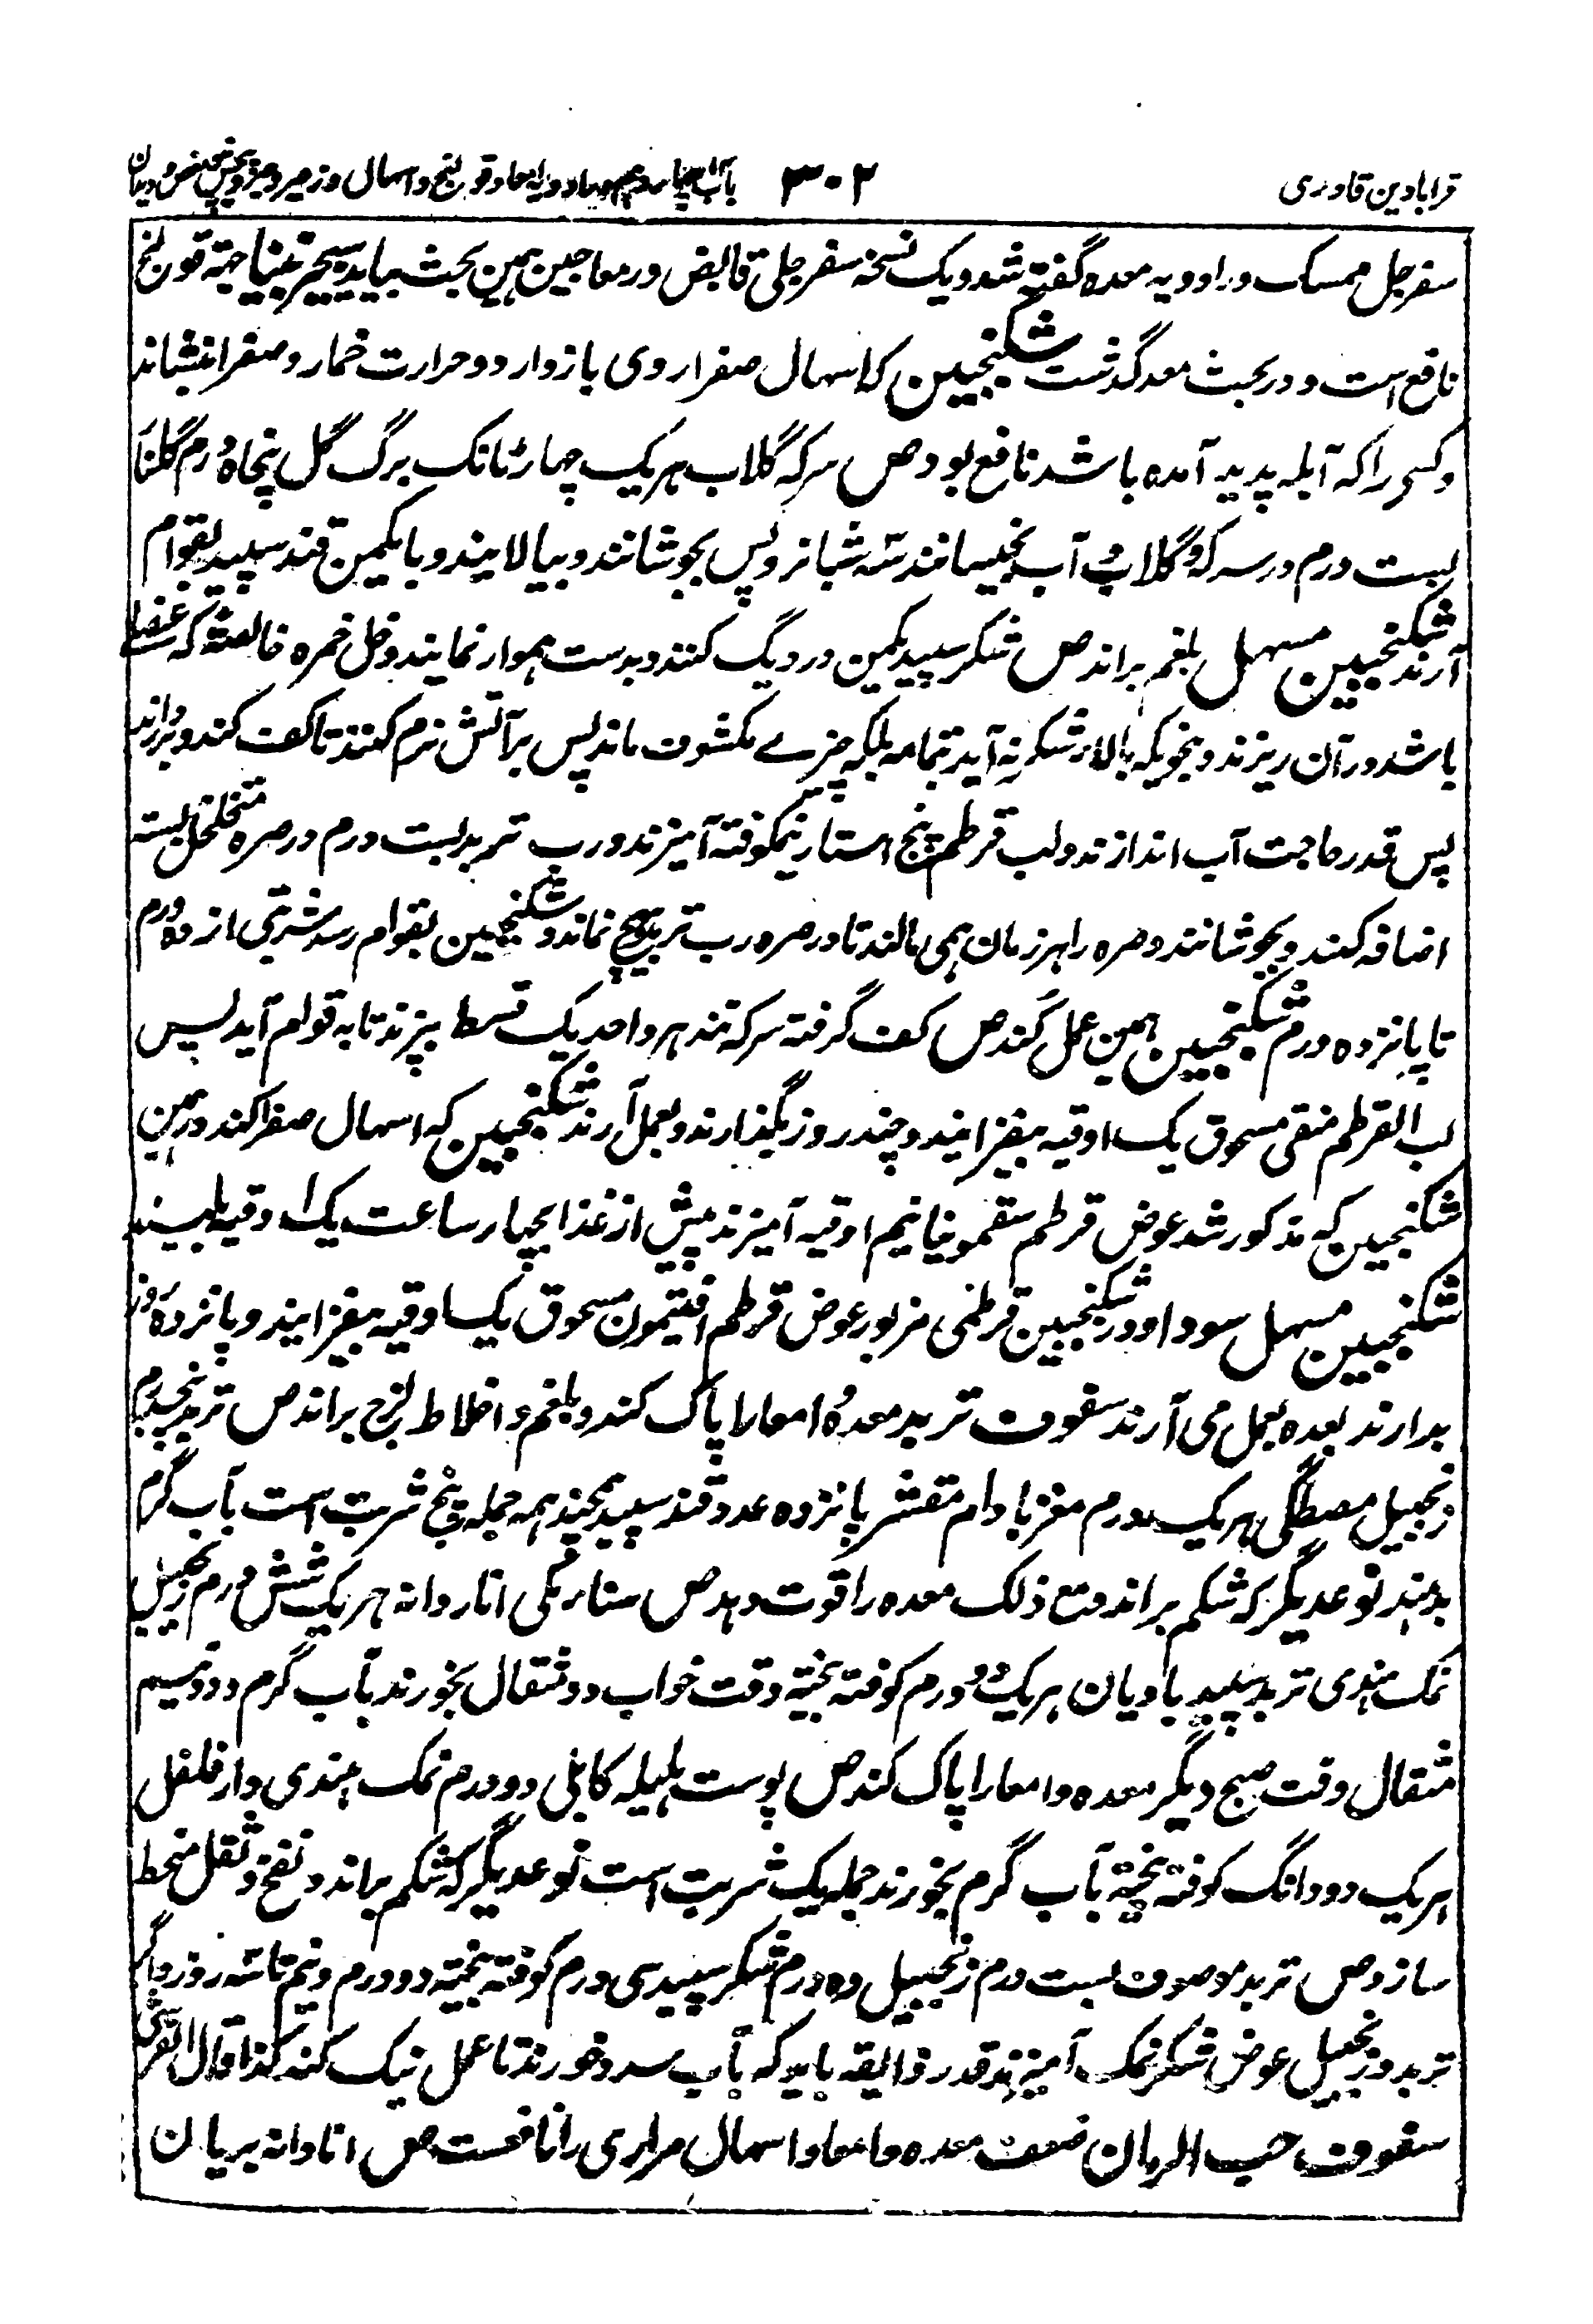 قرابادین قادری
۳۰۲
باب چهاردهم در ادویه امعا و قولنج و اسهال و زحیر
سفرجل ممسک در ادویه معده گفته شد و یک نسخه سفرجلی قابض در معاجین همین بحث بیاید جهته قولنج
نافع است و در بحث معده گذشت شکنجبین که اسهال صفراوی باز دارد و حرارت خمار و صفرا بنشاند
و کسی را که آبله پدید آمده باشد نافع بود ص سرکه گلاب هر یک چهار تانک برگ گل پنجاه درم گلنار
بست درم در سرکه و گلاب و آب بخیسانند سه شبانروز پس بجوشانند و بپالایند و با یکمن قند سپید بقوام
آرند شکنجبین مسهل بلغم براند ص شکر سپید یکمن در دیگ کنند و بدست هموار نمایند و خل خمره خالصه که عنصلی
باشد در آن ریزند و بخویکه بالای شکر نه آید بتمامه بلکه چیزے مکشوف ماند پس بر آتش نرم کنند تا کف کند و بردارند
پس قدر حاجت آب اندازند و لب قرطم پنج استار نیمکوفته آمیزند و رب تربد بست درم در صره متخلخل بسته
اضافه کنند و بجوشانند و صره را هر زمان همی مالند تا در صره رب تربد هیچ نماند و شکنجبین بقوام رسد شربتی از ده درم
تا پانزده درم شکنجبین همین عمل کند ص کف گرفته سرکه تند هر واحد یک قسط بپزند تا به قوام آید پس
لب القرطم منقی مسحوق یک اوقیه بیفزایند و چند روز بگذارند و بعمل آرند شکنجبین که اسهال صفرا کند در همین
شکنجبین که مذکور شد عوض قرطم سقمونیا نیم اوقیه آمیزند پیش از غذا بچهار ساعت یک اوقیه بلیسند
شکنجبین مسهل سودا و در شکنجبین قرطمی مزبور عوض قرطم افتیمون مسحوق یک اوقیه بیفزایند و پانزده روز
بدارند بعده بعمل می آرند سفوف تربد معده و امعا را پاک کند و بلغم و اخلاط لزج براند ص تربد پنجدرم
زنجبیل مصطگی هر یک درم مغز بادام مقشر پانزده عدد قند سپید بچند همه جمله پنج شربت است بآب گرم
بدهند نوعدیگر که شکم براند و مع ذلک معده را قوت دهد ص سناء مکی اناردانه هر یک شش درم زنجبیل
نمک هندی تربد سپید بادیان هر یک دو درم کوفته بیخته وقت خواب دو مثقال بخورند بآب گرم و دو نیم
مثقال وقت صبح دیگر معده و امعا را پاک کند ص پوست هلیله کابلی دو درم نمک هندی دارفلفل
هر یک دو دانگ کوفته بیخته بآب گرم بخورند جمله یک شربت است نوعدیگر که شکم براند و نفخ و ثقل منحط
سازد ص تربد موصوف بست درم زنجبیل ده درم شکر سپید سی درم کوفته بیخته دو درم و نیم تا سه روز و اگر
تربد و زنجبیل عوض شکر نمک آمیزند قدر ذایقه باید که بآب سرد خورند تا عمل نیک کند کذا قال القرشی
سفوف حب الرمان ضعف معده و امعا و اسهال مراری را نافعست ص اناردانه بریان